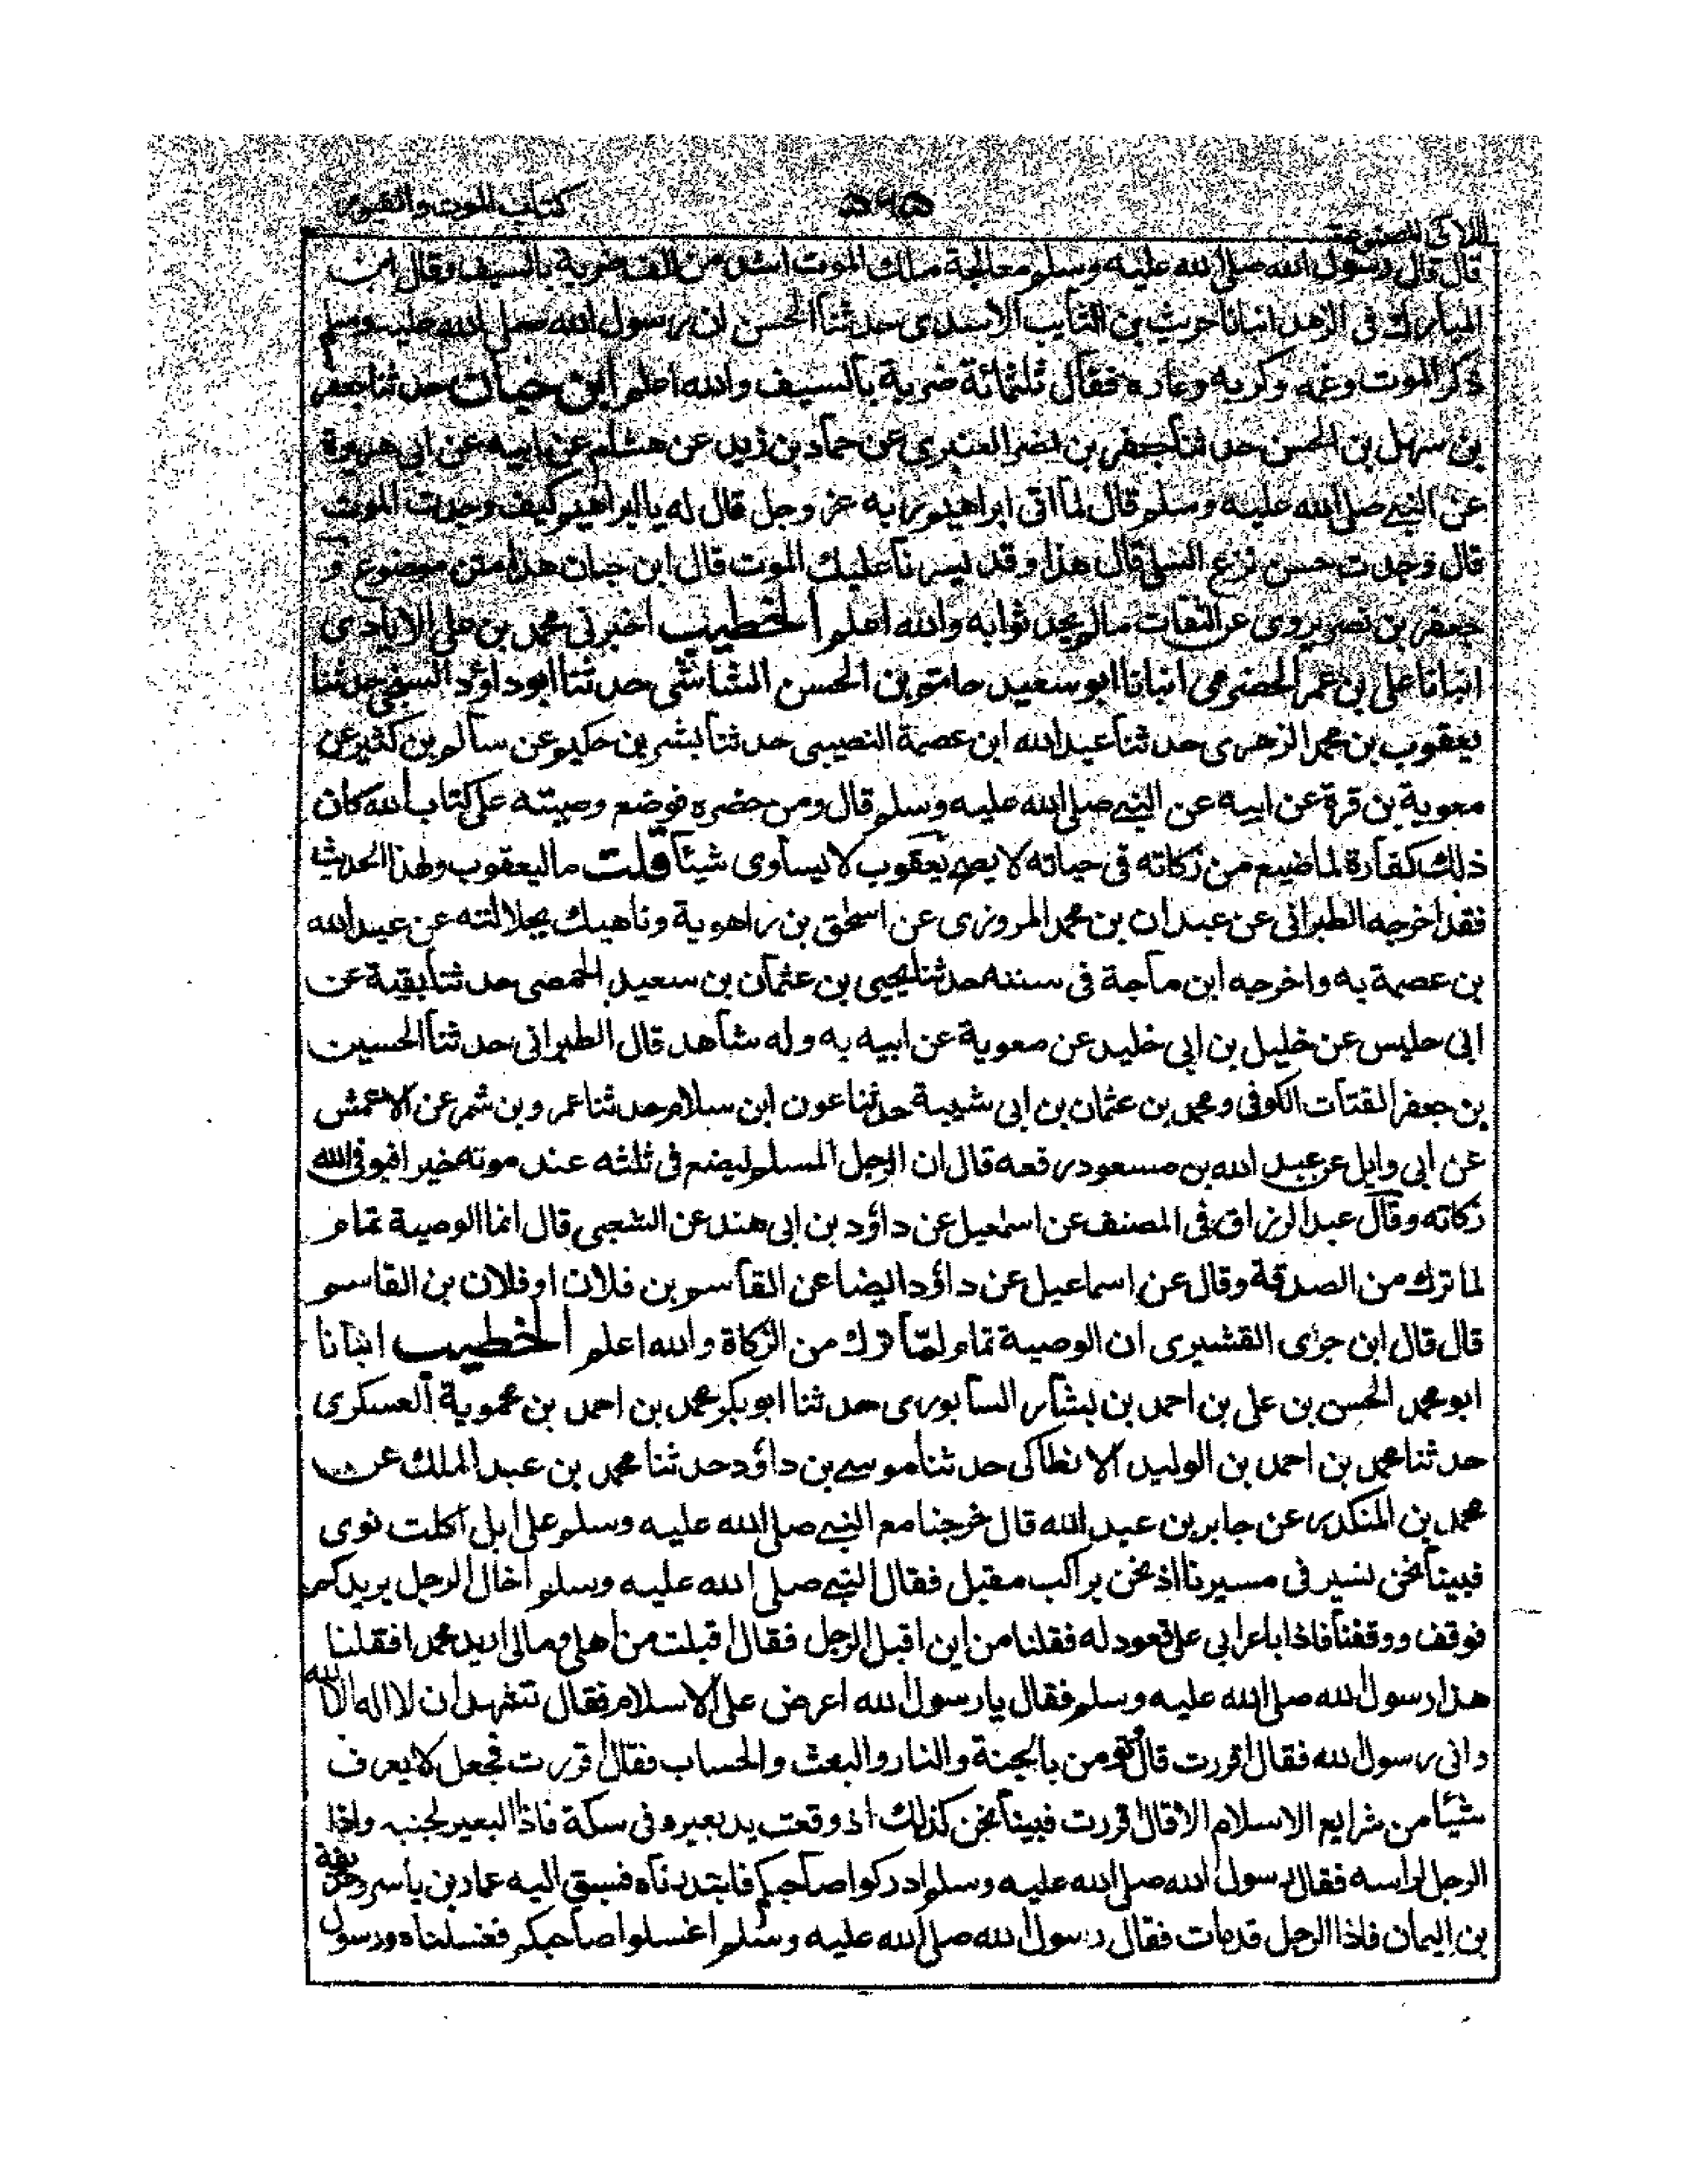 كتاب الموت والقبور
اللآلى المصنوعة
قال قال رسول الله صلى الله عليه وسلم معالجة ملك الموت اشد من الف ضربة بالسيف وقال ابن
المبارك فى الزهد انبانا حريث بن السايب الاسدى حدثنا الحسن ان رسول الله صلى الله عليه وسلم
ذكر الموت وغمه وكربه فقال ثلثمائة ضربة بالسيف والله اعلم ابن حبان حدثنا جعفر
بن سهل بن الحسن حدثنا جعفر بن نصر العنبرى عن حماد بن زيد عن هشام عن ابيه عن ابى هريرة
عن النبى صلى الله عليه وسلم قال لما اتى ابراهيم ربه عز وجل قال له يا ابراهيم كيف وجدت الموت
قال وجدت حسن نزع السلى قال هذا وقد يسرنا عليك الموت قال ابن حبان هذا متن مصنوع و
جعفر بن نصر يروى عن الثقات مالم يحدثوا به والله اعلم الخطيب اخبرنى محمد بن على الايادى
انبانا على بن عمر الحضرمى انبانا ابو سعيد حاتم بن الحسن الشاشى حدثنا ابو داؤد السبخى حدثنا
يعقوب بن محمد الزهرى حدثنا عبد الله ابن عصمة النصيبى حدثنا بشر بن حكيم عن سالم بن كثير عن
معوية بن قرة عن ابيه عن النبى صلى الله عليه وسلم قال ومن حضره فوضع وصيته على كتاب الله كان
ذلك كفارة لما ضيع من زكاته فى حياته لا يصح يعقوب لا يساوى شيئا قلت ما ليعقوب ولهذا الحديث
فقد اخرجه الطبرانى عن عبدان بن محمد المروزى عن اسحق بن راهوية وناهيك بجلالته عن عبد الله
بن عصمة به واخرجه ابن ماجة فى سننه حدثنا يحيى بن عثمان بن سعيد الحمصى حدثنا بقية عن
ابى حليس عن خليل بن ابى خليد عن معوية عن ابيه به وله شاهد قال الطبرانى حدثنا الحسين
بن جعفر القتات الكوفى ومحمد بن عثمان بن ابى شيبة حدثنا عون ابن سلام حدثنا عمر وبن شمر عن الاعمش
عن ابى وايل عن عبد الله بن مسعود رفعه قال ان الرجل المسلم ليضع فى ثلثه عند موته خيرا فيوفى الله
زكاته وقال عبد الرزاق فى المصنف عن اسمعيل عن داؤد بن ابى هند عن الشعبى قال انما الوصية تمام
لما ترك من الصدقة وقال عن اسماعيل عن داؤد ايضا عن القاسم بن فلان او فلان بن القاسم
قال قال ابن جزى القشيرى ان الوصية تمام لما ترك من الزكاة والله اعلم الخطيب انبانا
ابو محمد الحسن بن على بن احمد بن بشار السابورى حدثنا ابو بكر محمد بن احمد بن محموية العسكرى
حدثنا محمد بن احمد بن الوليد الانطاكى حدثنا موسى بن داؤد حدثنا محمد بن عبد الملك عن
محمد بن المنكدر عن جابر بن عبد الله قال خرجنا مع النبى صلى الله عليه وسلم على ابل اكلت نوى
فبينا نحن نسير فى مسيرنا اذ نحن براكب مقبل فقال النبى صلى الله عليه وسلم اخال الرجل يريدكم
فوقف ووقفنا فاذا باعرابى على قعود له فقلنا من اين اقبل الرجل فقال اقبلت من اهلى ومالى اريد محمدا فقلنا
هذا رسول الله صلى الله عليه وسلم فقال يا رسول الله اعرض على الاسلام فقال تشهد ان لا اله الا الله
وانى رسول الله فقال اقررت قال تؤمن بالجنة والنار والبعث والحساب فقال اقررت فجعل لا يعرف
شيئا من شرايع الاسلام الا قال اقررت فبينا نحن كذلك اذ وقعت يد بعيره فى سكة فاذا البعير لجنبه واذا
الرجل لراسه فقال رسول الله صلى الله عليه وسلم ادركوا صاحبكم فابتدرناه فسبق اليه عمار بن ياسر وحذيفة
بن اليمان فاذا الرجل قد مات فقال رسول الله صلى الله عليه وسلم اغسلوا صاحبكم فغسلناه ورسول